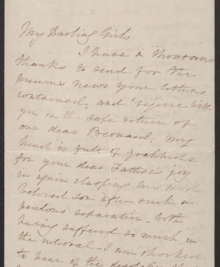 My Darling Girls
I have a thousand
thanks to send for the
news your letters
contained, and rejoice with
you in the safe return of
our dear Bernard. My
heart is full of gratitude
for your dear Father's joy
in again clasping his
beloved son after such a
perilous separation. both
having suffered so much in
the interval. I am shocked
to hear of the